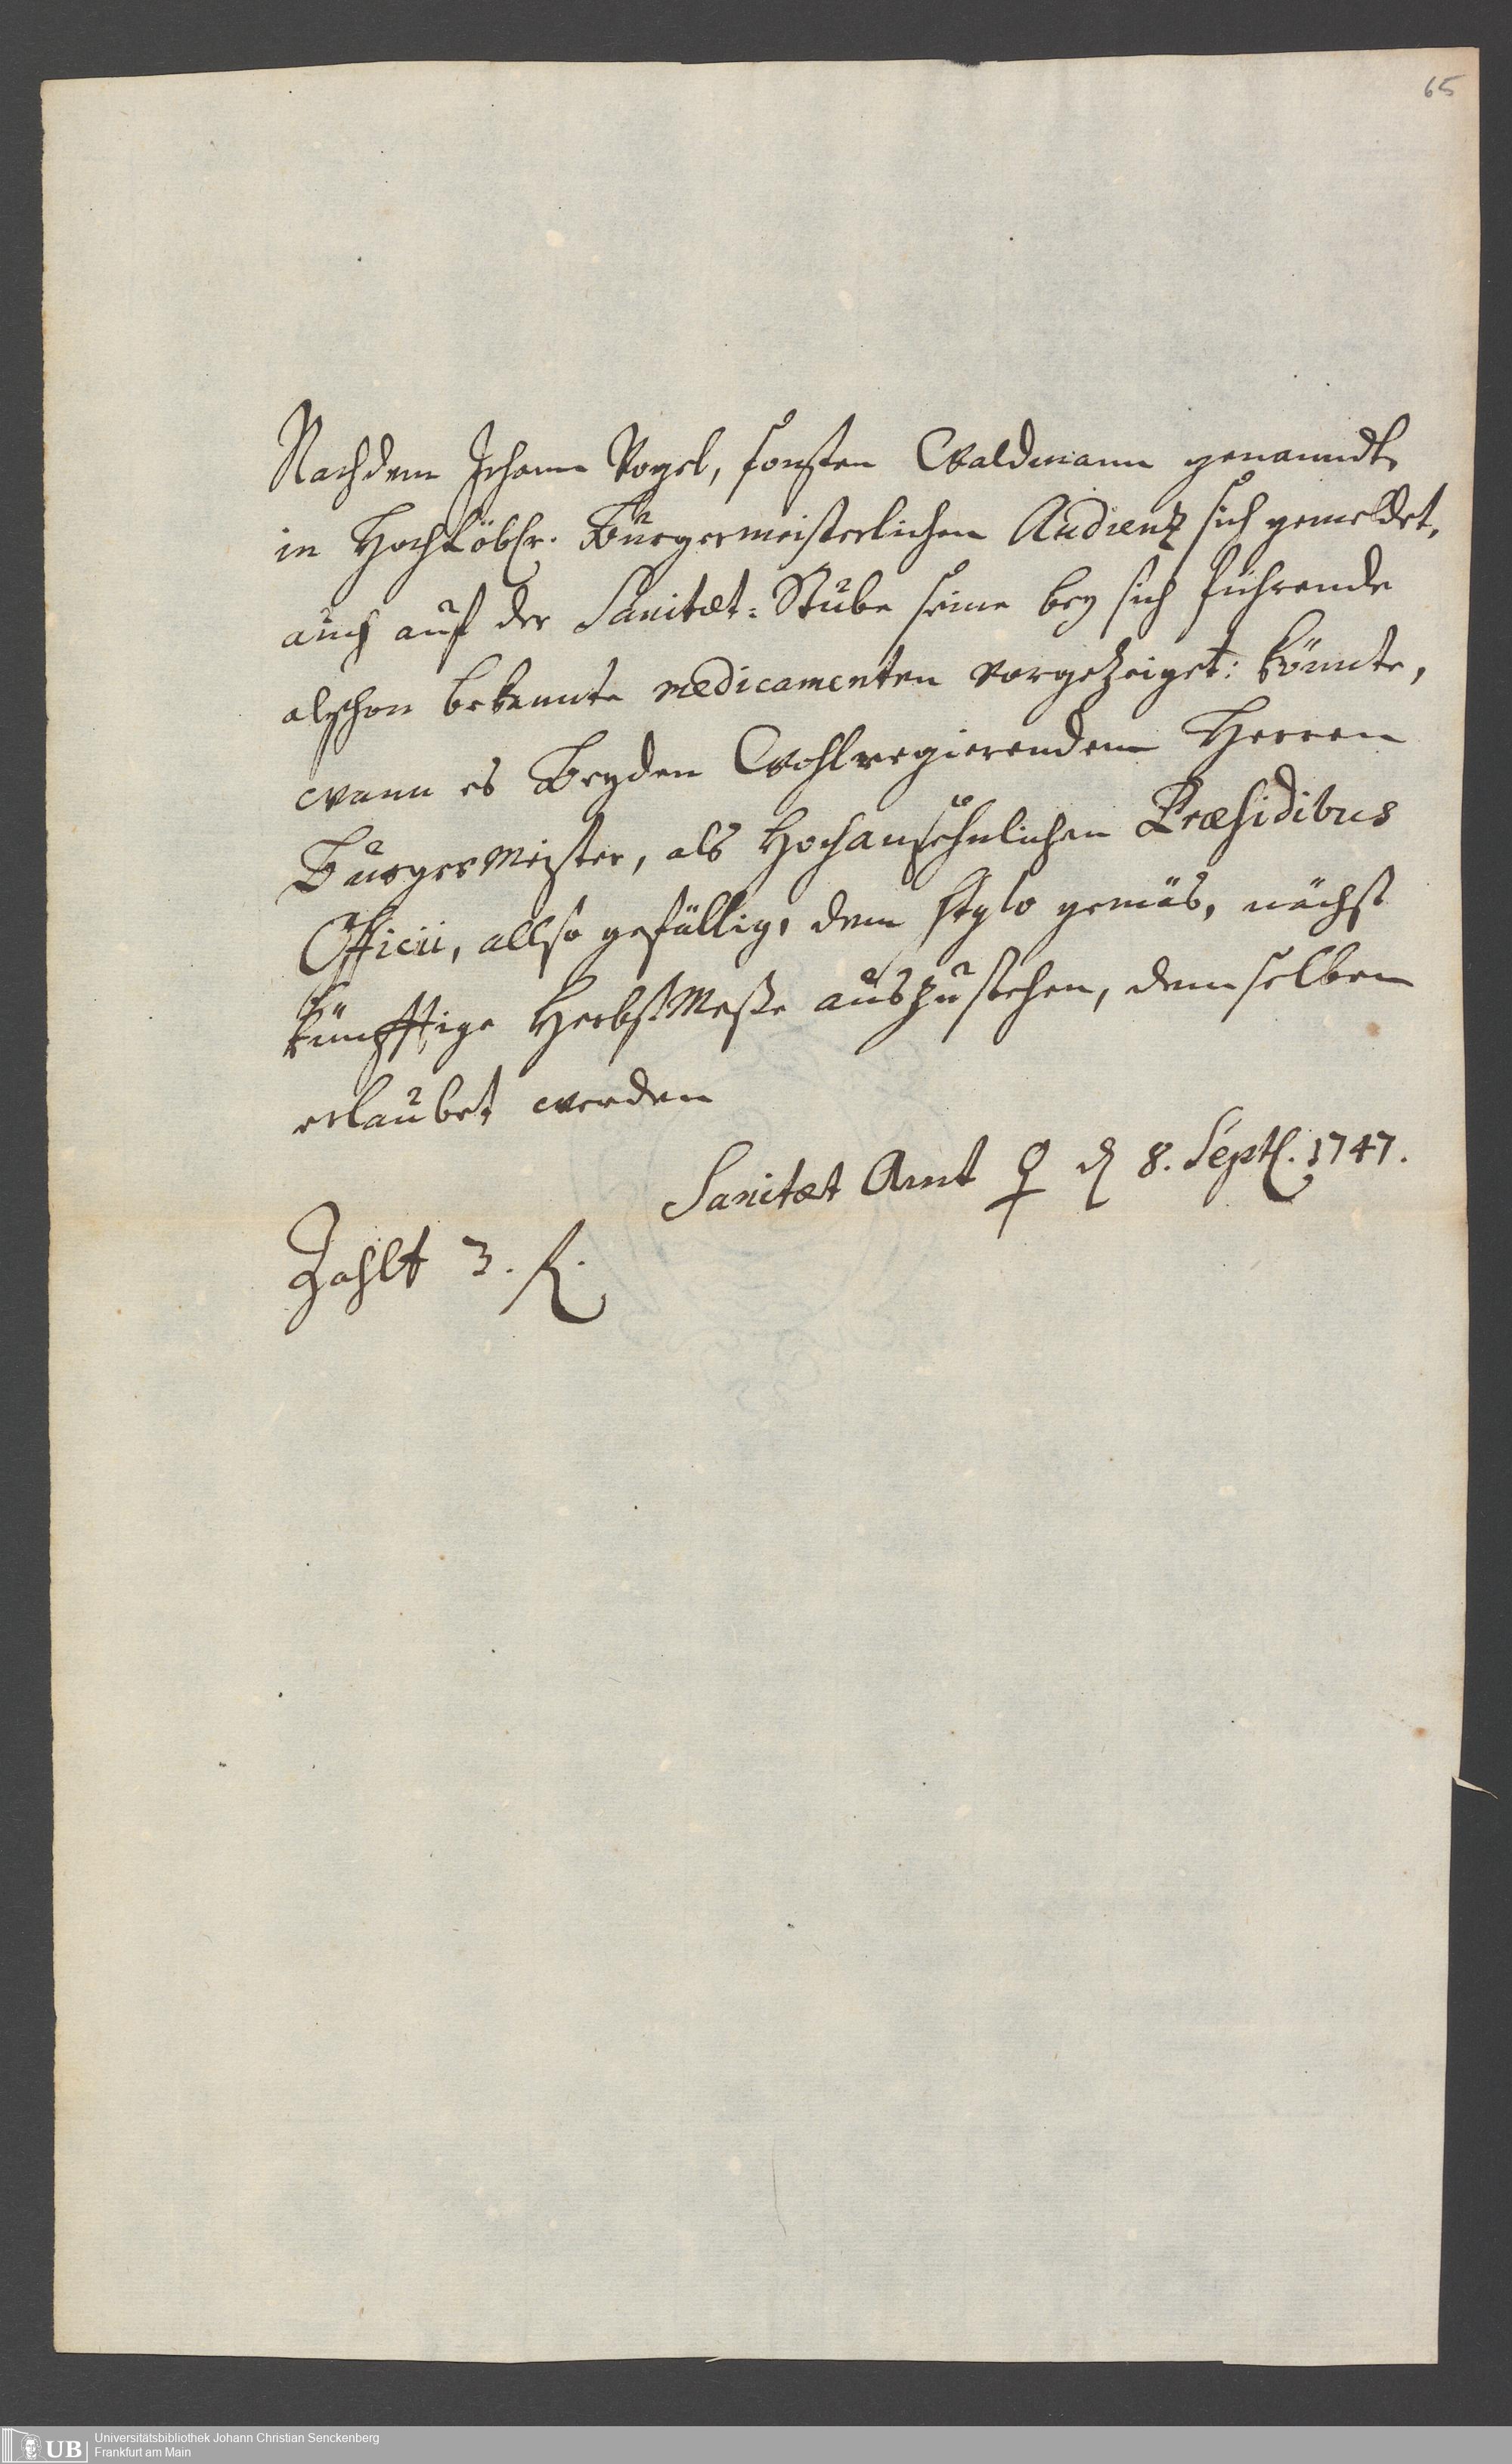 65
Nachdem Johann Vogel, sonsten Waldmann genanndt,
in Hochlöblr. Burgermeisterlichen Audienz sich gemeldet,
auch auf der Sanitæt-Stube seine bey sich führende
alschon bekannte medicamenten vorgezeiget: könnte,
wann es Beyden Wohlregierenden Herren
Burgermeister, als Hochansehnlichen Præsidibus
Officii, allso gefällig, dem stylo gemäs, nächst
künfftige HerbstMeße auszustehen, demselben
erlaubet werden
Sanitæt Amt ♀ d 8. Sept. 1747.
Zahlt 3. R.
UB
Universitätsbibliothek Johann Christian Senckenberg
Frankfurt am Main